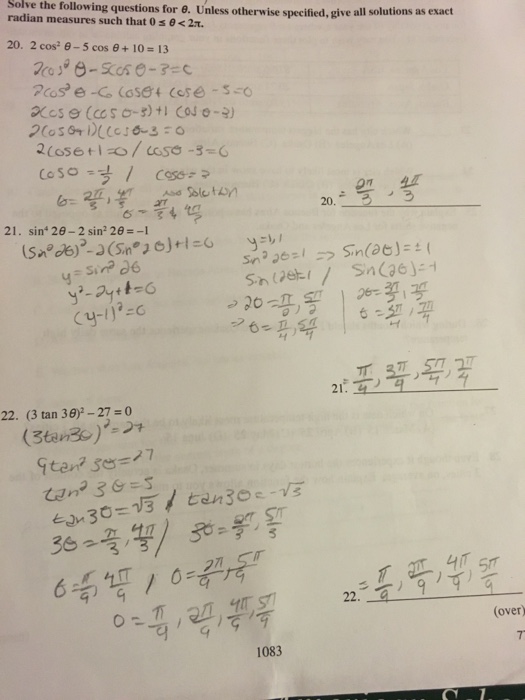 Solve the following questions for θ. Unless otherwise specified, give all solutions as exact
radian measures such that 0 ≤ θ < 2π.
20. 2 cos² θ – 5 cos θ + 10 = 13
2cos²θ-5cosθ-3=0
2cos²θ-6cosθ+cosθ-3=0
2cosθ(cosθ-3)+1(cosθ-3)
2cosθ+1)(cosθ-3=0
2cosθ+1=0/cosθ-3=0
cosθ=-1/2 / cosθ=3
θ=2π/3, 4π/3 no solution
θ=2π/3 & 4π/3
20. = 2π/3, 4π/3
21. sin⁴ 2θ – 2 sin² 2θ = –1
(sin²2θ)²-2(sin²2θ)+1=0
y=sin²2θ
y²-2y+1=0
(y-1)²=0
y=1,1
sin²2θ=1 => sin(2θ)=±1
sin(2θ)=1 / sin(2θ)=-1
=> 2θ=π/2, 5π/2 | 2θ=3π/2, 7π/2
=> θ=π/4, 5π/4 | θ=3π/4, 7π/4
21. = π/4, 3π/4, 5π/4, 7π/4
22. (3 tan 3θ)² – 27 = 0
(3tan3θ)²=27
9tan²3θ=27
tan²3θ=3
tan3θ=√3 / tan3θ=-√3
3θ=π/3, 4π/3 / 3θ=2π/3, 5π/3
θ=π/9, 4π/9 / θ=2π/9, 5π/9
θ=π/9, 2π/9, 4π/9, 5π/9
22. = π/9, 2π/9, 4π/9, 5π/9
(over)
1083